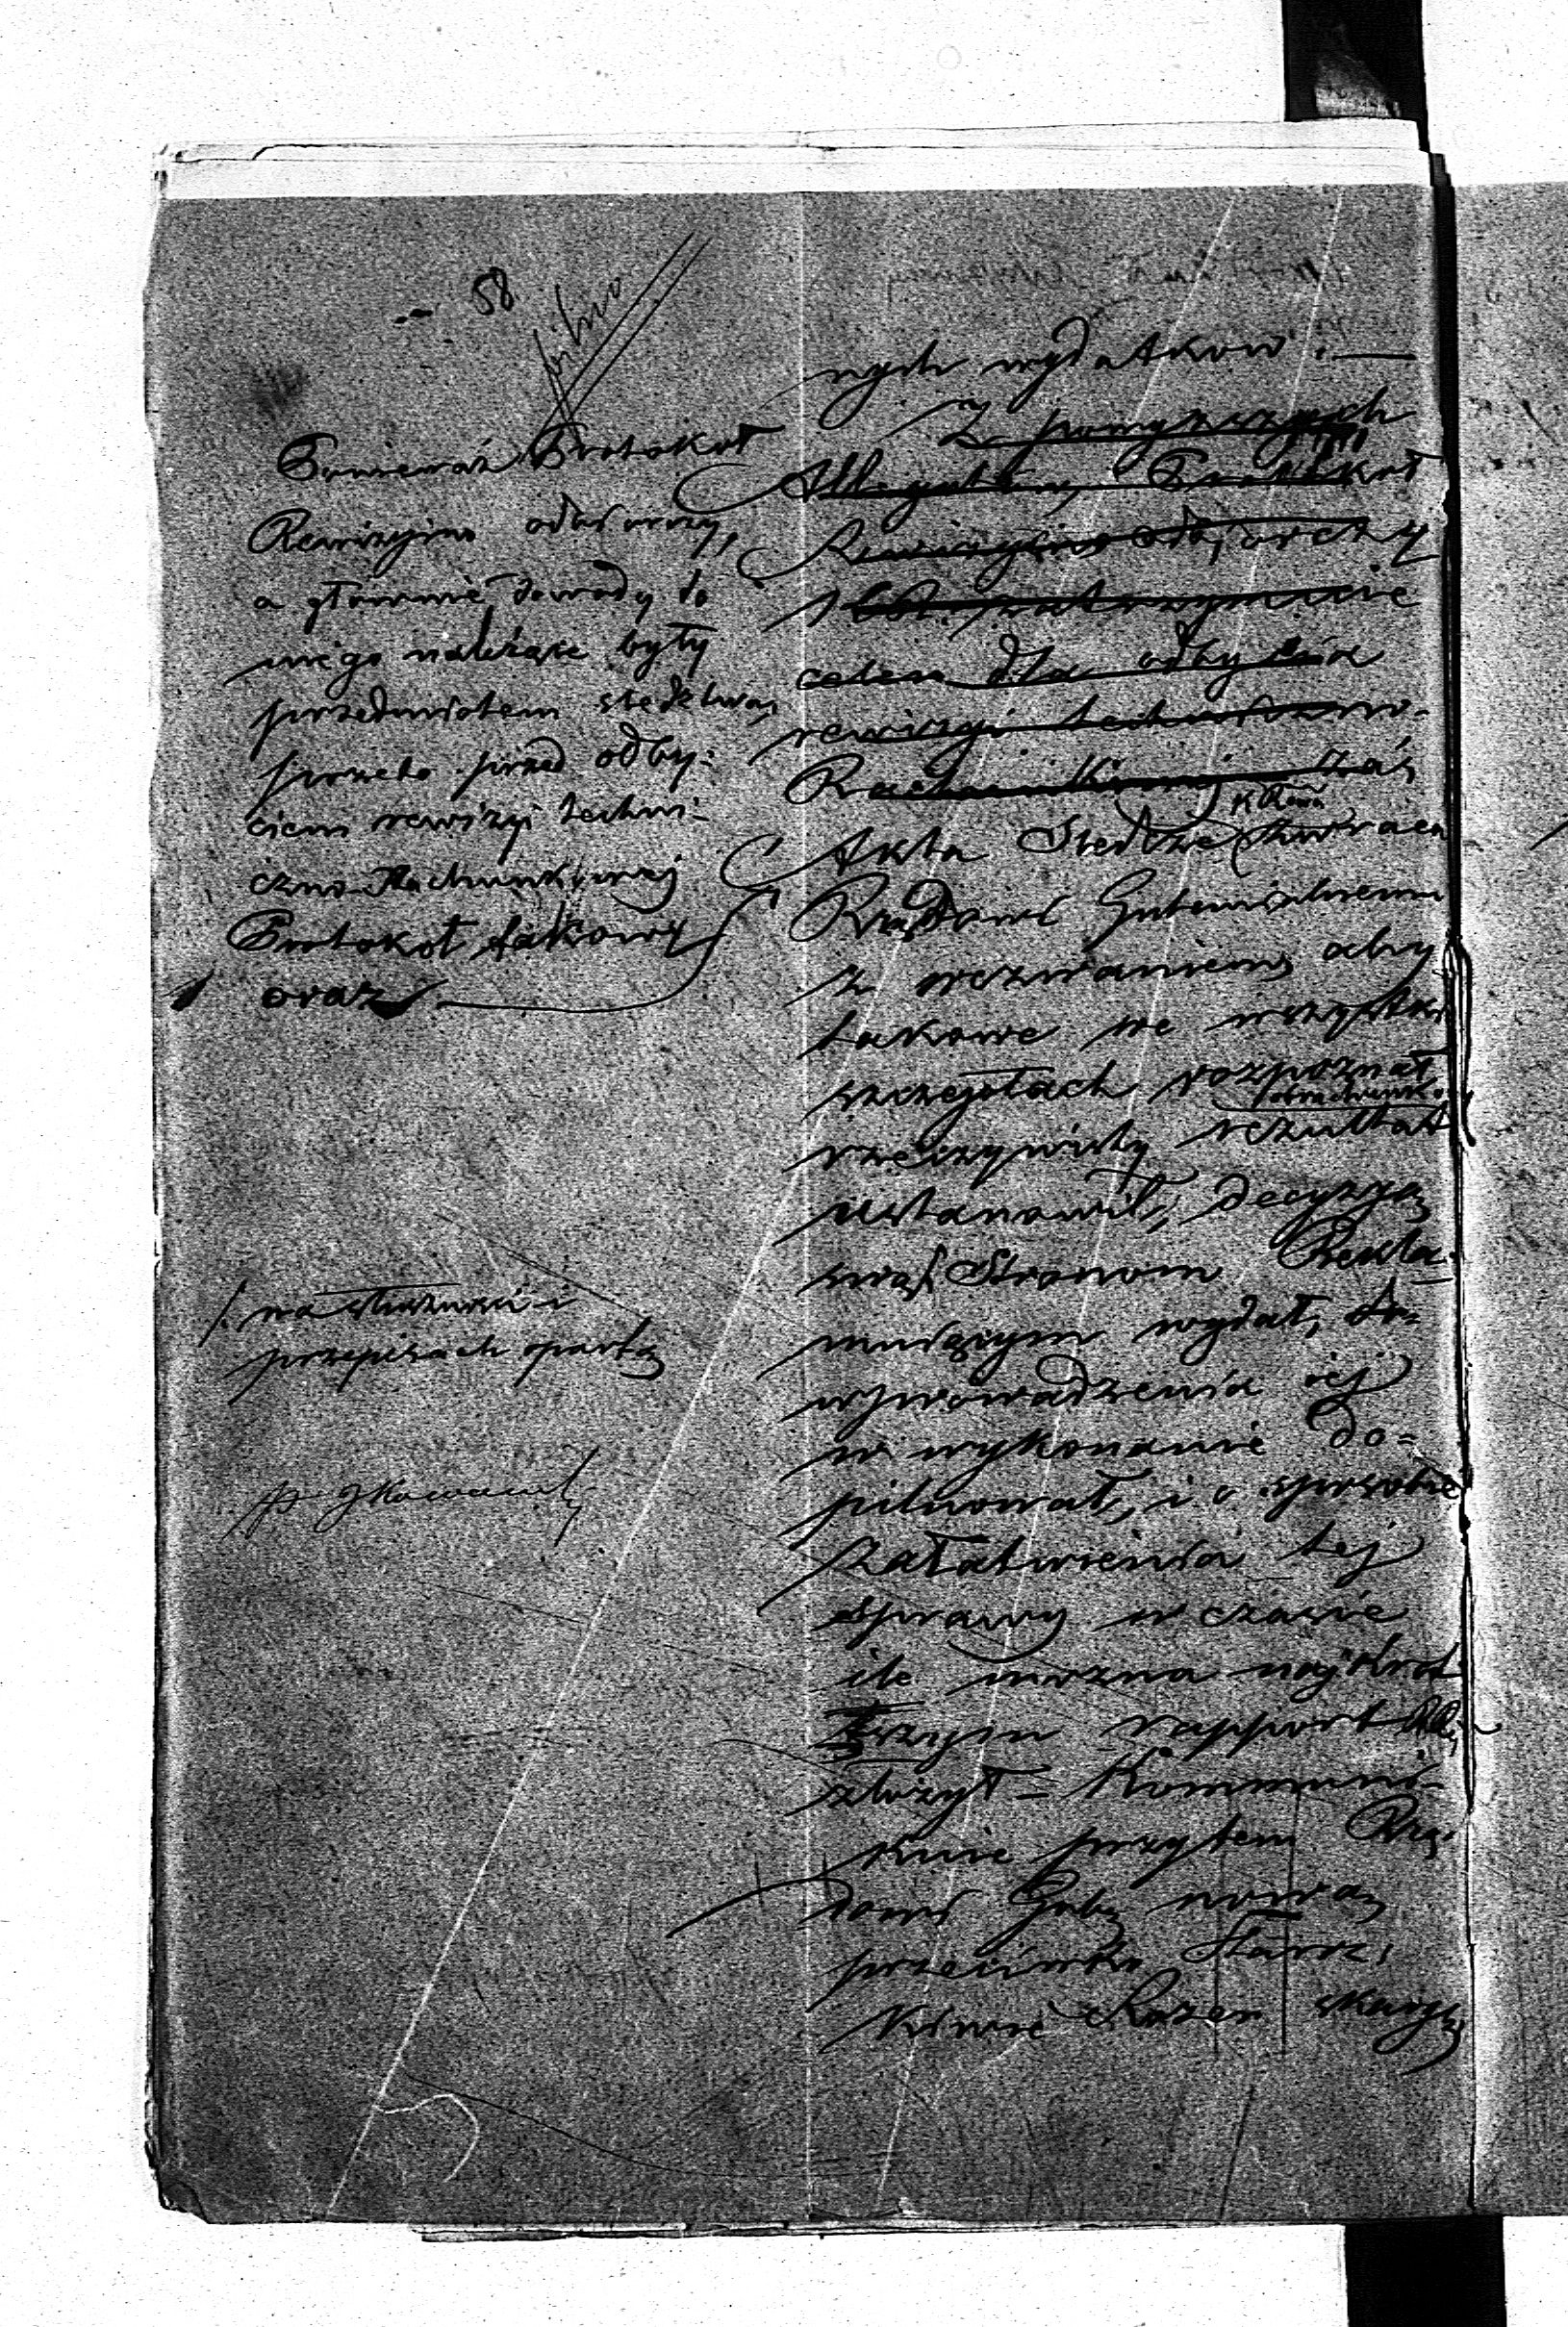 58
pilno
Ponieważ Protokół
Rewizyino odbiorczy,
a głownie dowody do
niego należące były
przedmiotem śledztwa,
przeto przed odby-
ciem rewizyi techni-
czno-Rachunkowej
Protokół takowy
oraz
/. na słuszności i
przepisach opartą
nych wydatkow. —
Z powyższych
Allegatów, Protokoł
Rewizyino odbiorczy
zatrzymuie
celem dla odbycia
rewizyi techniczno-
Rachunkowej zaś
Akta Śledcze zwraca
Rządowi Gubernialnemu
z wezwaniem, aby
takowe we wszystkich
szczegołach rozpoznał
obrachunku
rzeczywisty rezultat
ustanowił, decyzyą
swą Stronom Rekla-
muiącym wydał, do-
wprowadzenia iej
w wykonanie do-
pilnował, i o sposobie
załatwienia tej
Sprawy w czasie
ile można najkrot
szym rapport
złożył = Kommuni-
kuie przytem Rzą-
dowi Gub. nową
przeciwko Staroz.
Kiwie Rozen skargę